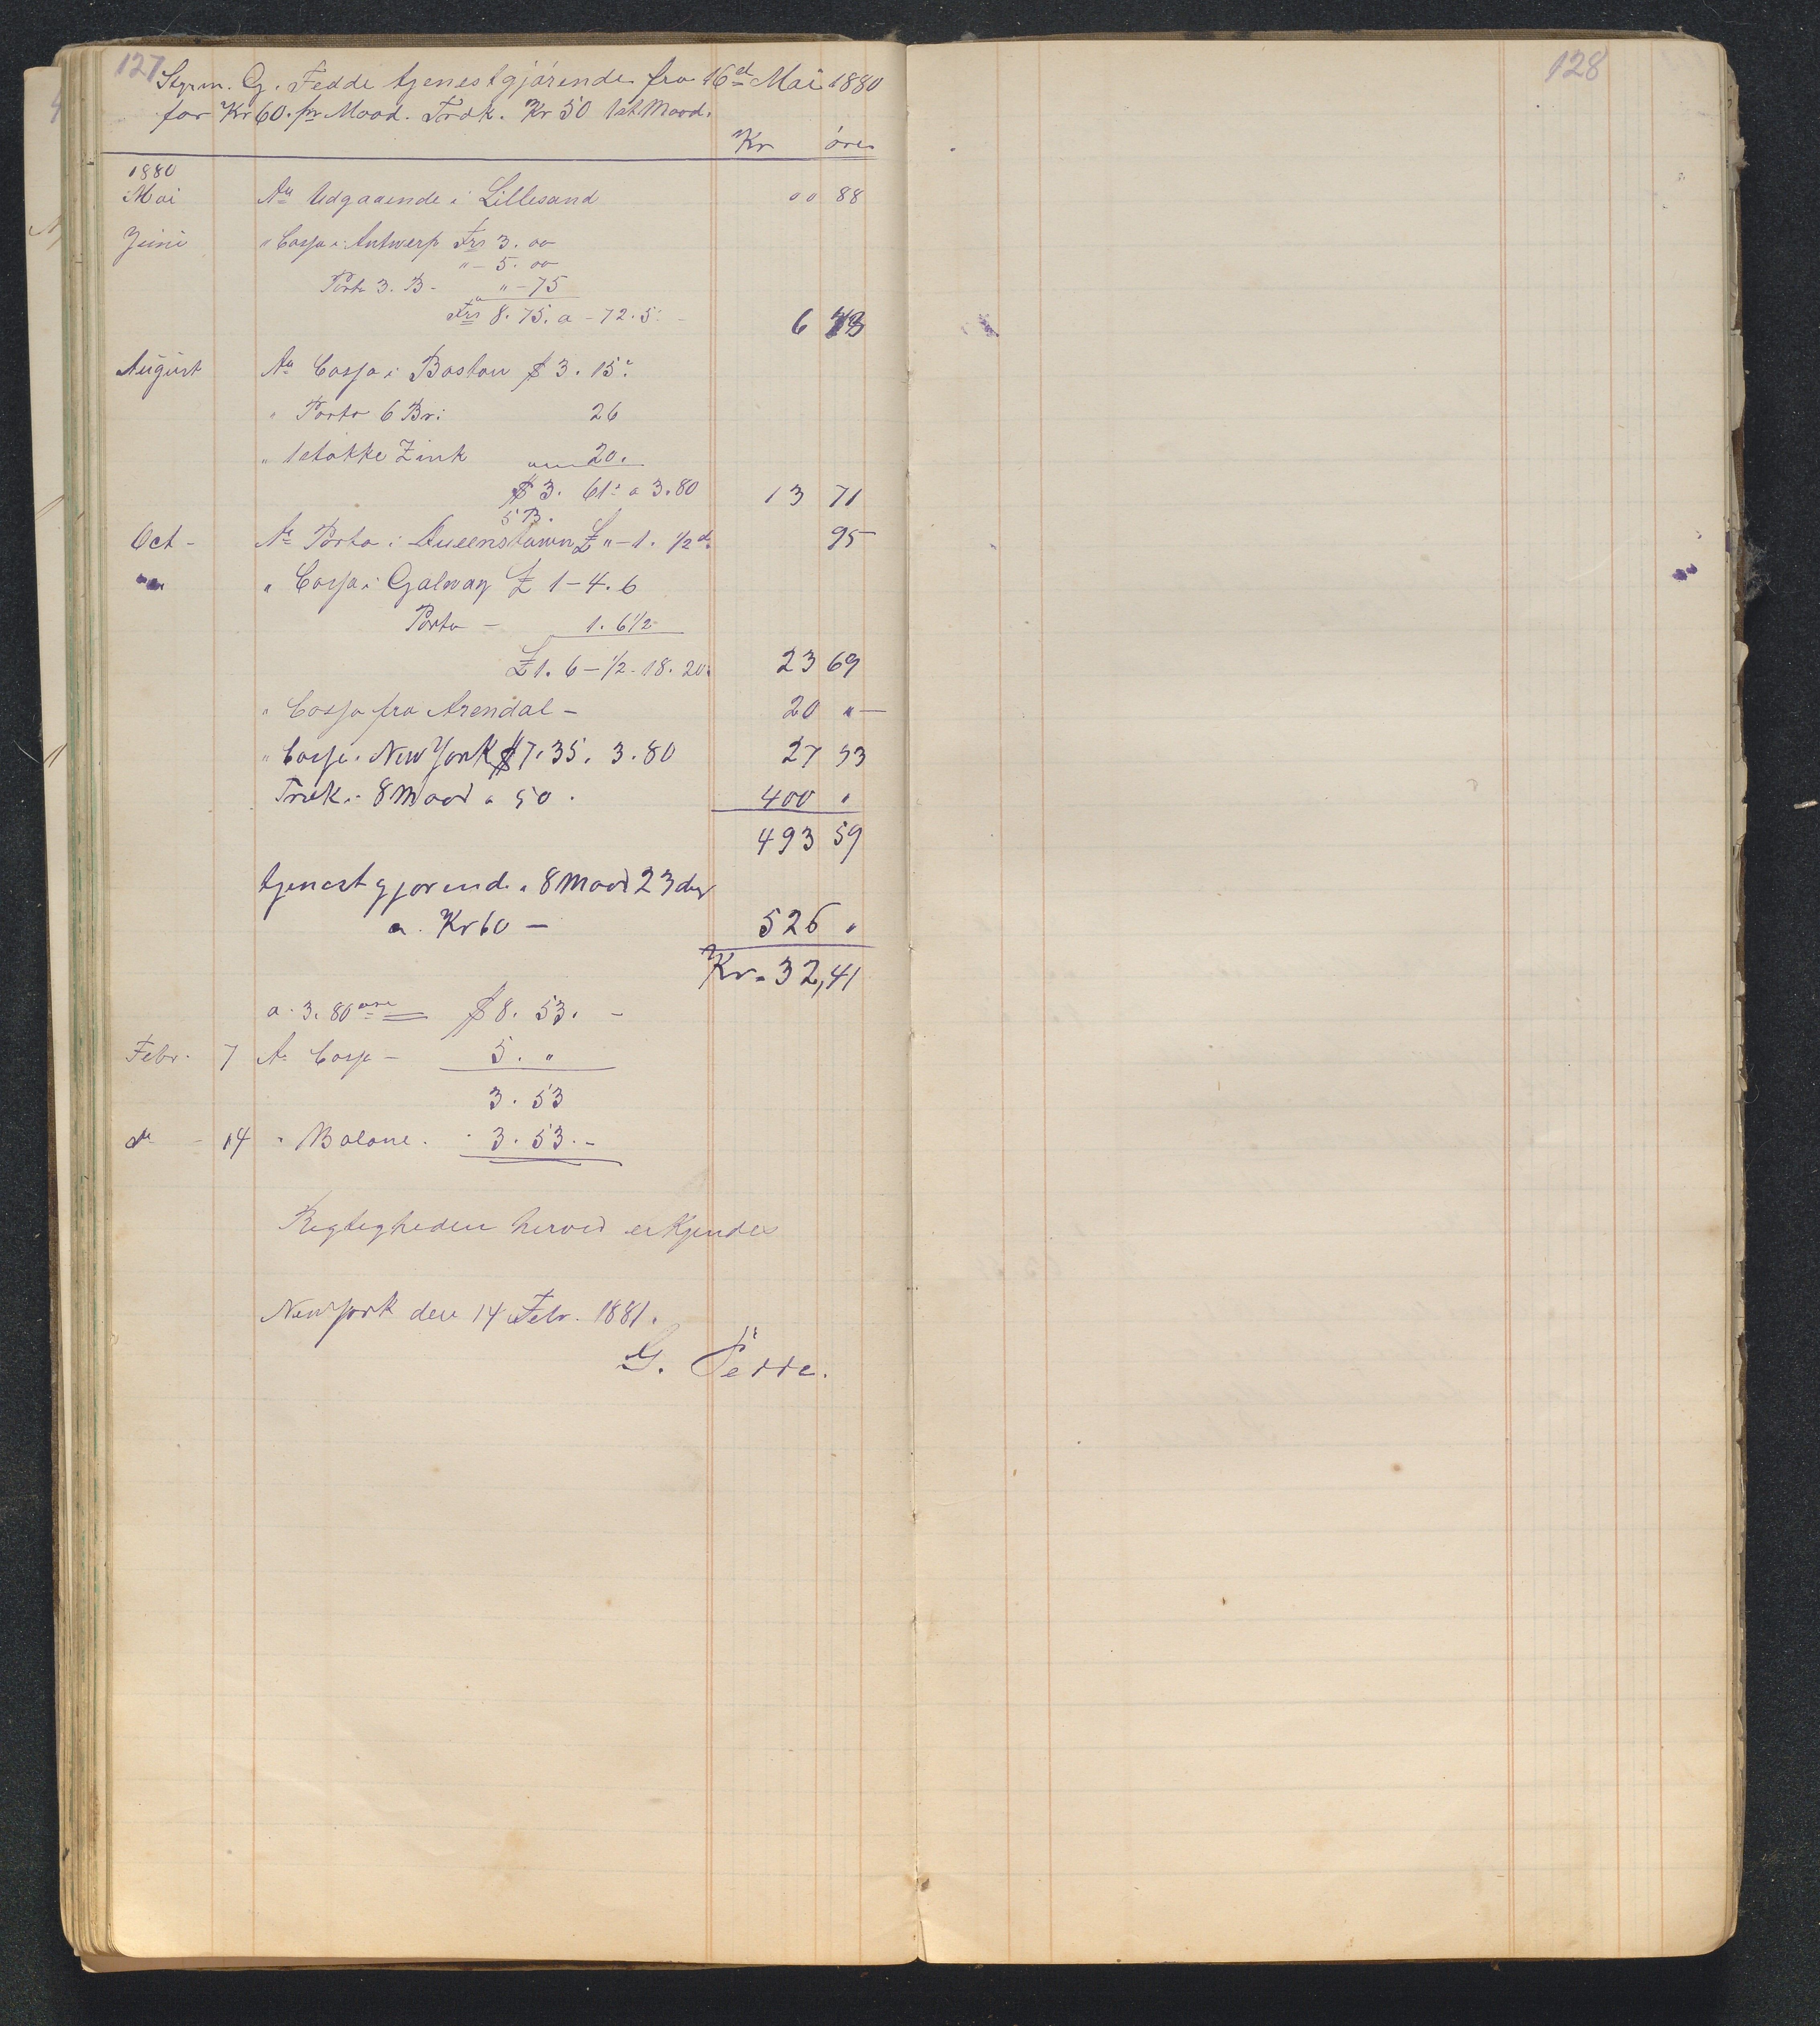 127
Styrm. G. Fedde tjenestgjörende fra 16de Mai 1880
for Kr 60. pr Maad. Træk. Kr 50 1st Maad.
Kr öre
1880
Mai An Udgaaende i Lillesand " " 88
Juni " Cassa i Antwerp Frs 3. 00
" - 5. 00
Porto 3. B - " - 75
Frs 8. 75. a - 72.5 - 6
August An Cassa i Boston $ 3. 15
" Porto 6 Br: 26
" 1 stökke Zink 20.
$ 3. 61 a 3.80 13 71
5 B.
Oct - An Porto i Queenstown £ " - 1. 1/2 d. 95
" Cassa i Galway £ 1 - 4. 6
Porto - 1. 6 1/2
£ 1. 6 - 1/2 - 18. 20. 23 69
" Cassa fra Arendal - 20 " -
" Cassa i New York $ 7. 35. 3. 80 27 93
Træk i 8 Maad a 50. 400 "
493 59
tjenestgjorende i 8 Maad 23 dag
a. Kr 60 - 526 "
Kr. 32,41
a. 3. 80 öre = $ 8. 53. -
Febr. 7 An Cassa - 5. "
3. 53
do - 14 " Balane. 3. 53. -
Regtigheden herved erkjendes
New York den 14 Febr. 1881.
G. Fedde.
128